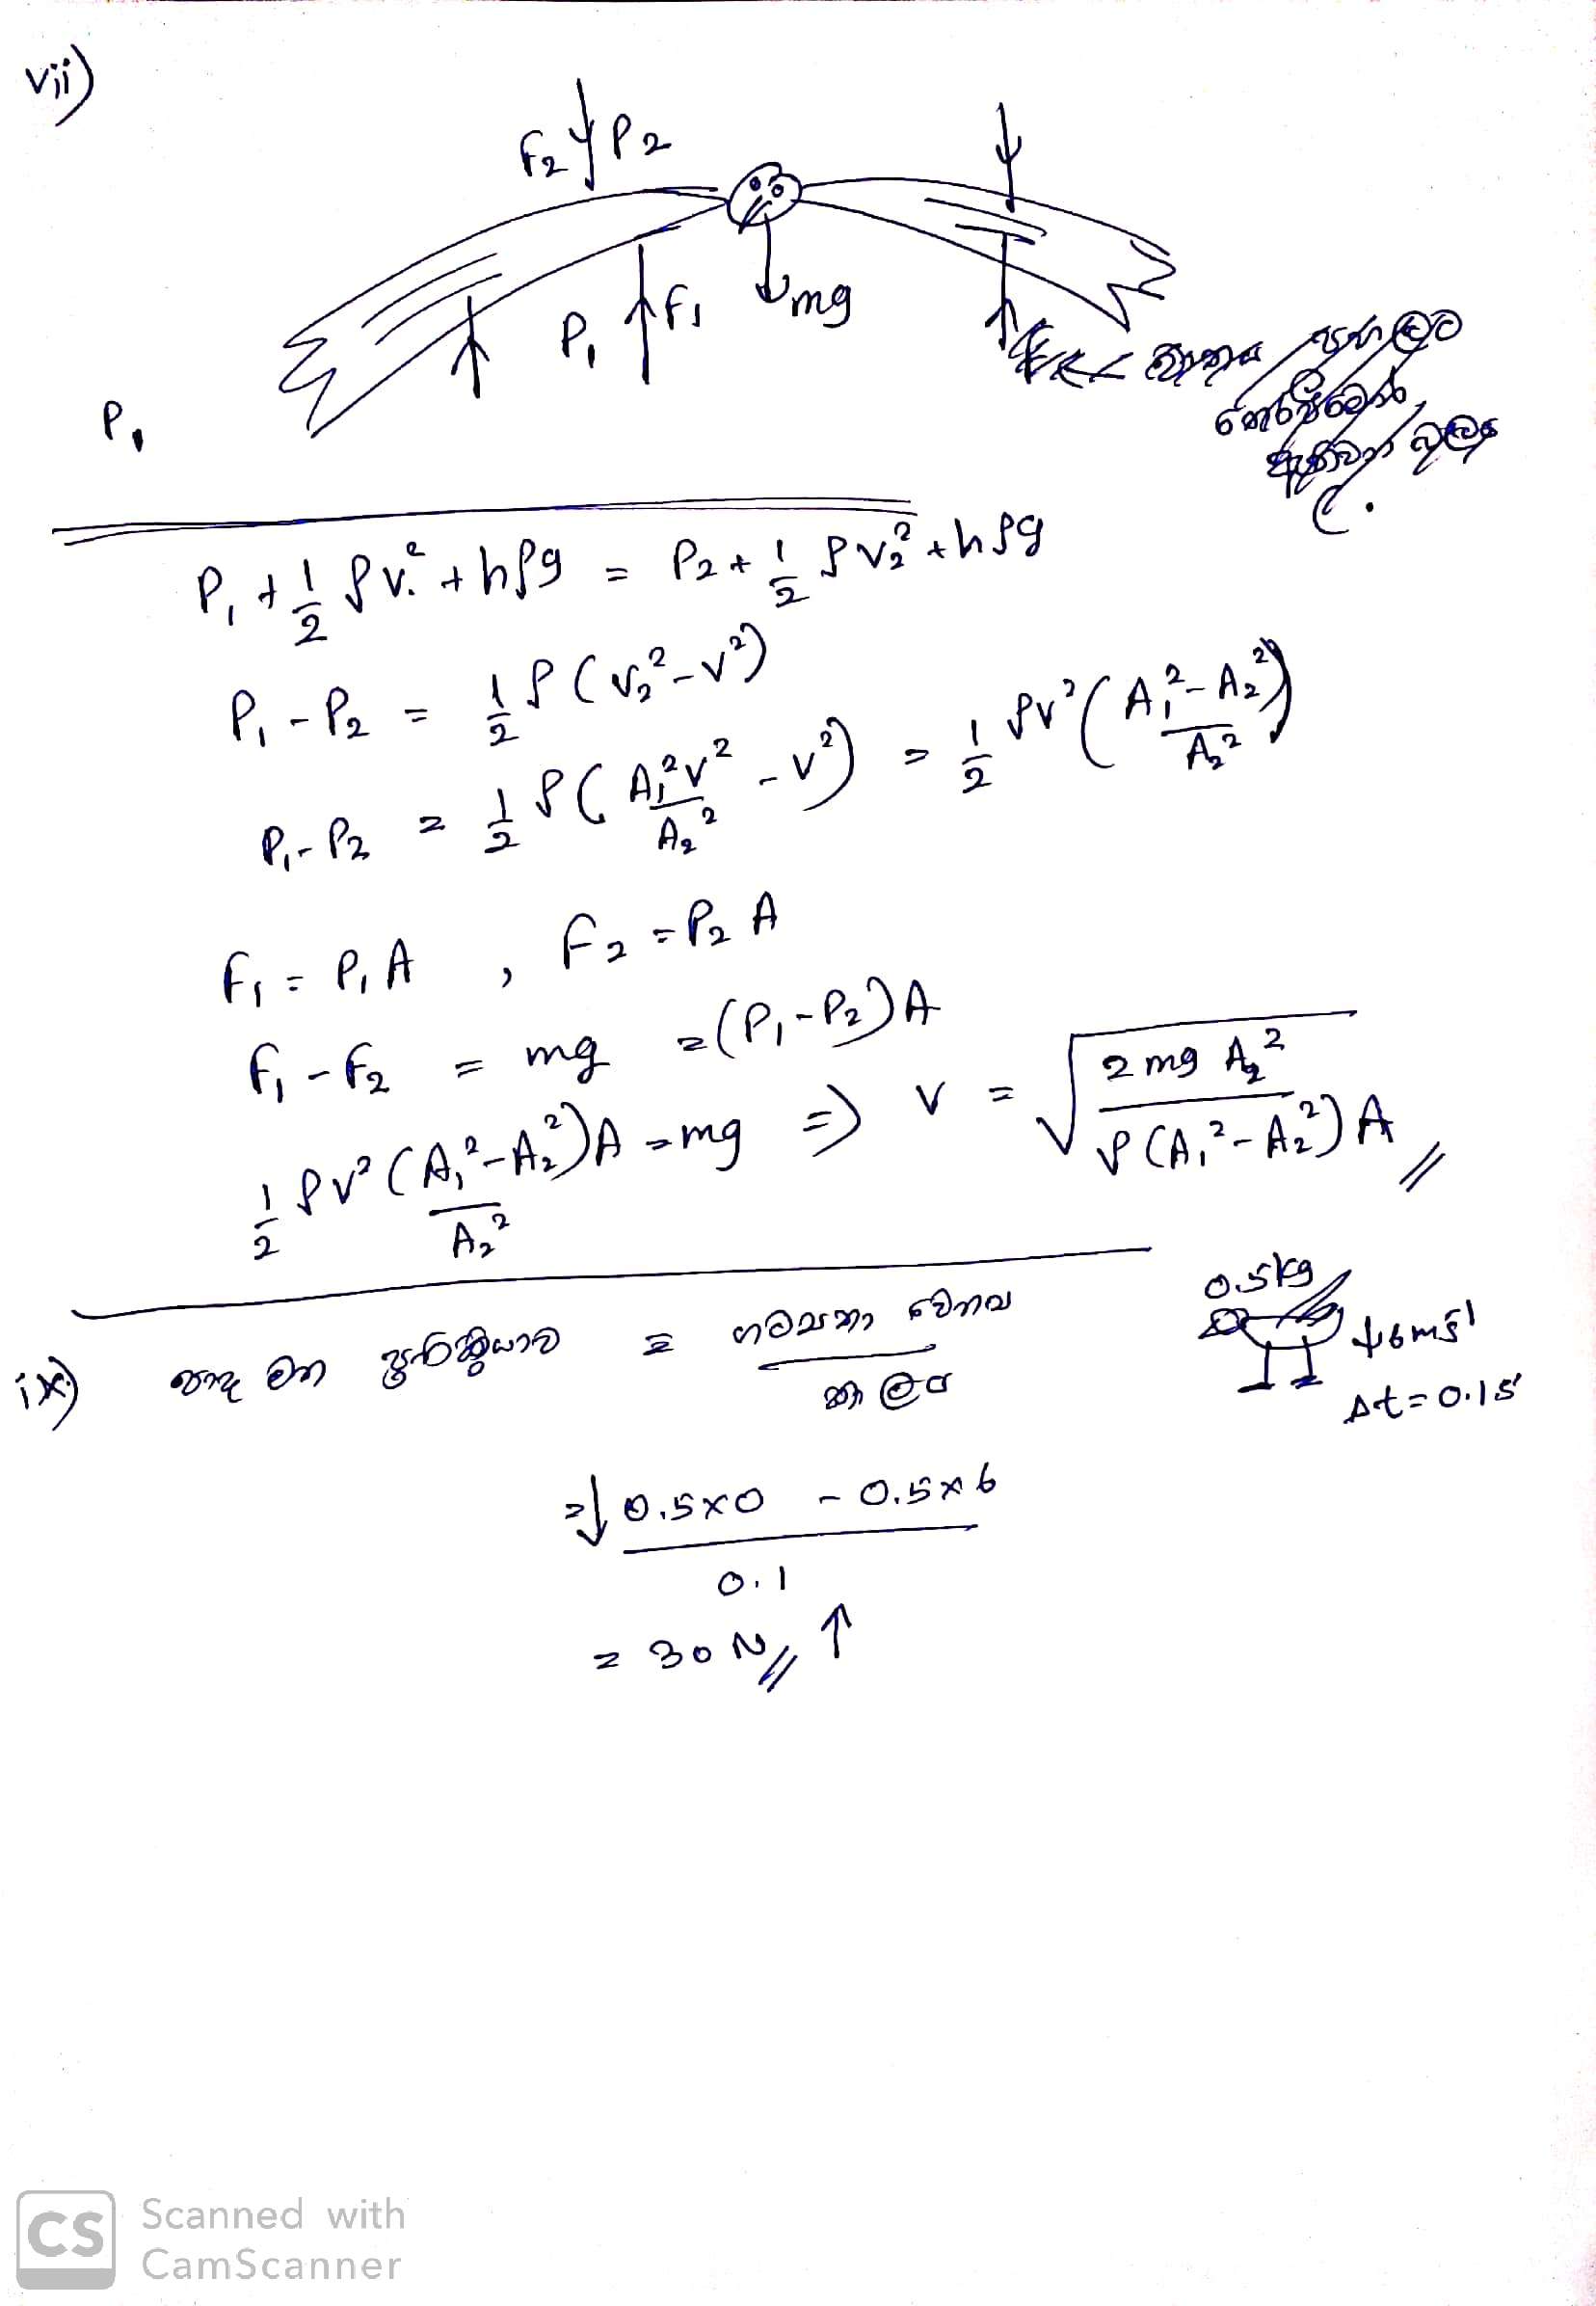 vii)
F₂ P₂
P₁ F₁ mg
P₁
P₁ + 1/2 ρv² + hρg = P₂ + 1/2 ρv₂² + hρg
P₁ - P₂ = 1/2 ρ(v₂² - v²)
P₁ - P₂ = 1/2 ρ(A₁²v²/A₂² - v²) = 1/2 ρv²(A₁² - A₂²/A₂²)
F₁ = P₁A , F₂ = P₂A
F₁ - F₂ = mg = (P₁ - P₂)A
1/2 ρv²(A₁² - A₂²)A/A₂² = mg ⇒ v = √(2mgA₂²/ρ(A₁² - A₂²)A)
ix) පාද මත ප්‍රතික්‍රියාව = ගම්‍යතා වෙනස / කාලය
0.5kg
↓6ms⁻¹
Δt = 0.1s
= ↓ 0.5×0 - 0.5×6 / 0.1
= 30 N ↑
CS Scanned with
CamScanner